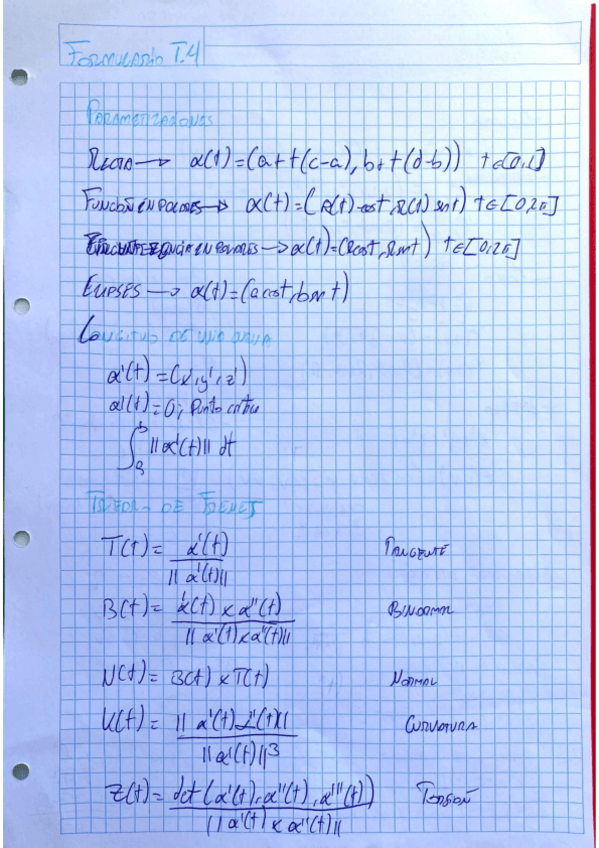 FORMULARIO T.4
PARAMETIZACIONES
RECTA → α(t) = (a + t(c-a), b + t(d-b)) t∈[0,1]
FUNCIÓN EN POLARES → α(t) = (R(t) cost, R(t) sint) t∈[0,2π]
CIRCUNFERENCIA EN POLARES → α(t) = (Rcost, Rsint) t∈[0,2π]
ELIPSES → α(t) = (a cost, b sin t)
LONGITUD DE UNA CURVA
α'(t) = (x', y', z')
α'(t) = 0; Punto crítico
∫ₐᵇ ||α'(t)|| dt
TRIEDRO DE FRENET
T(t) = α'(t) / ||α'(t)|| TANGENTE
B(t) = α'(t) × α''(t) / ||α'(t) × α''(t)|| BINORMAL
N(t) = B(t) × T(t) NORMAL
K(t) = || α'(t) α''(t) || / ||α'(t)||³ CURVATURA
Z(t) = det (α'(t), α''(t), α'''(t)) / ||α'(t) × α''(t)|| TORSIÓN